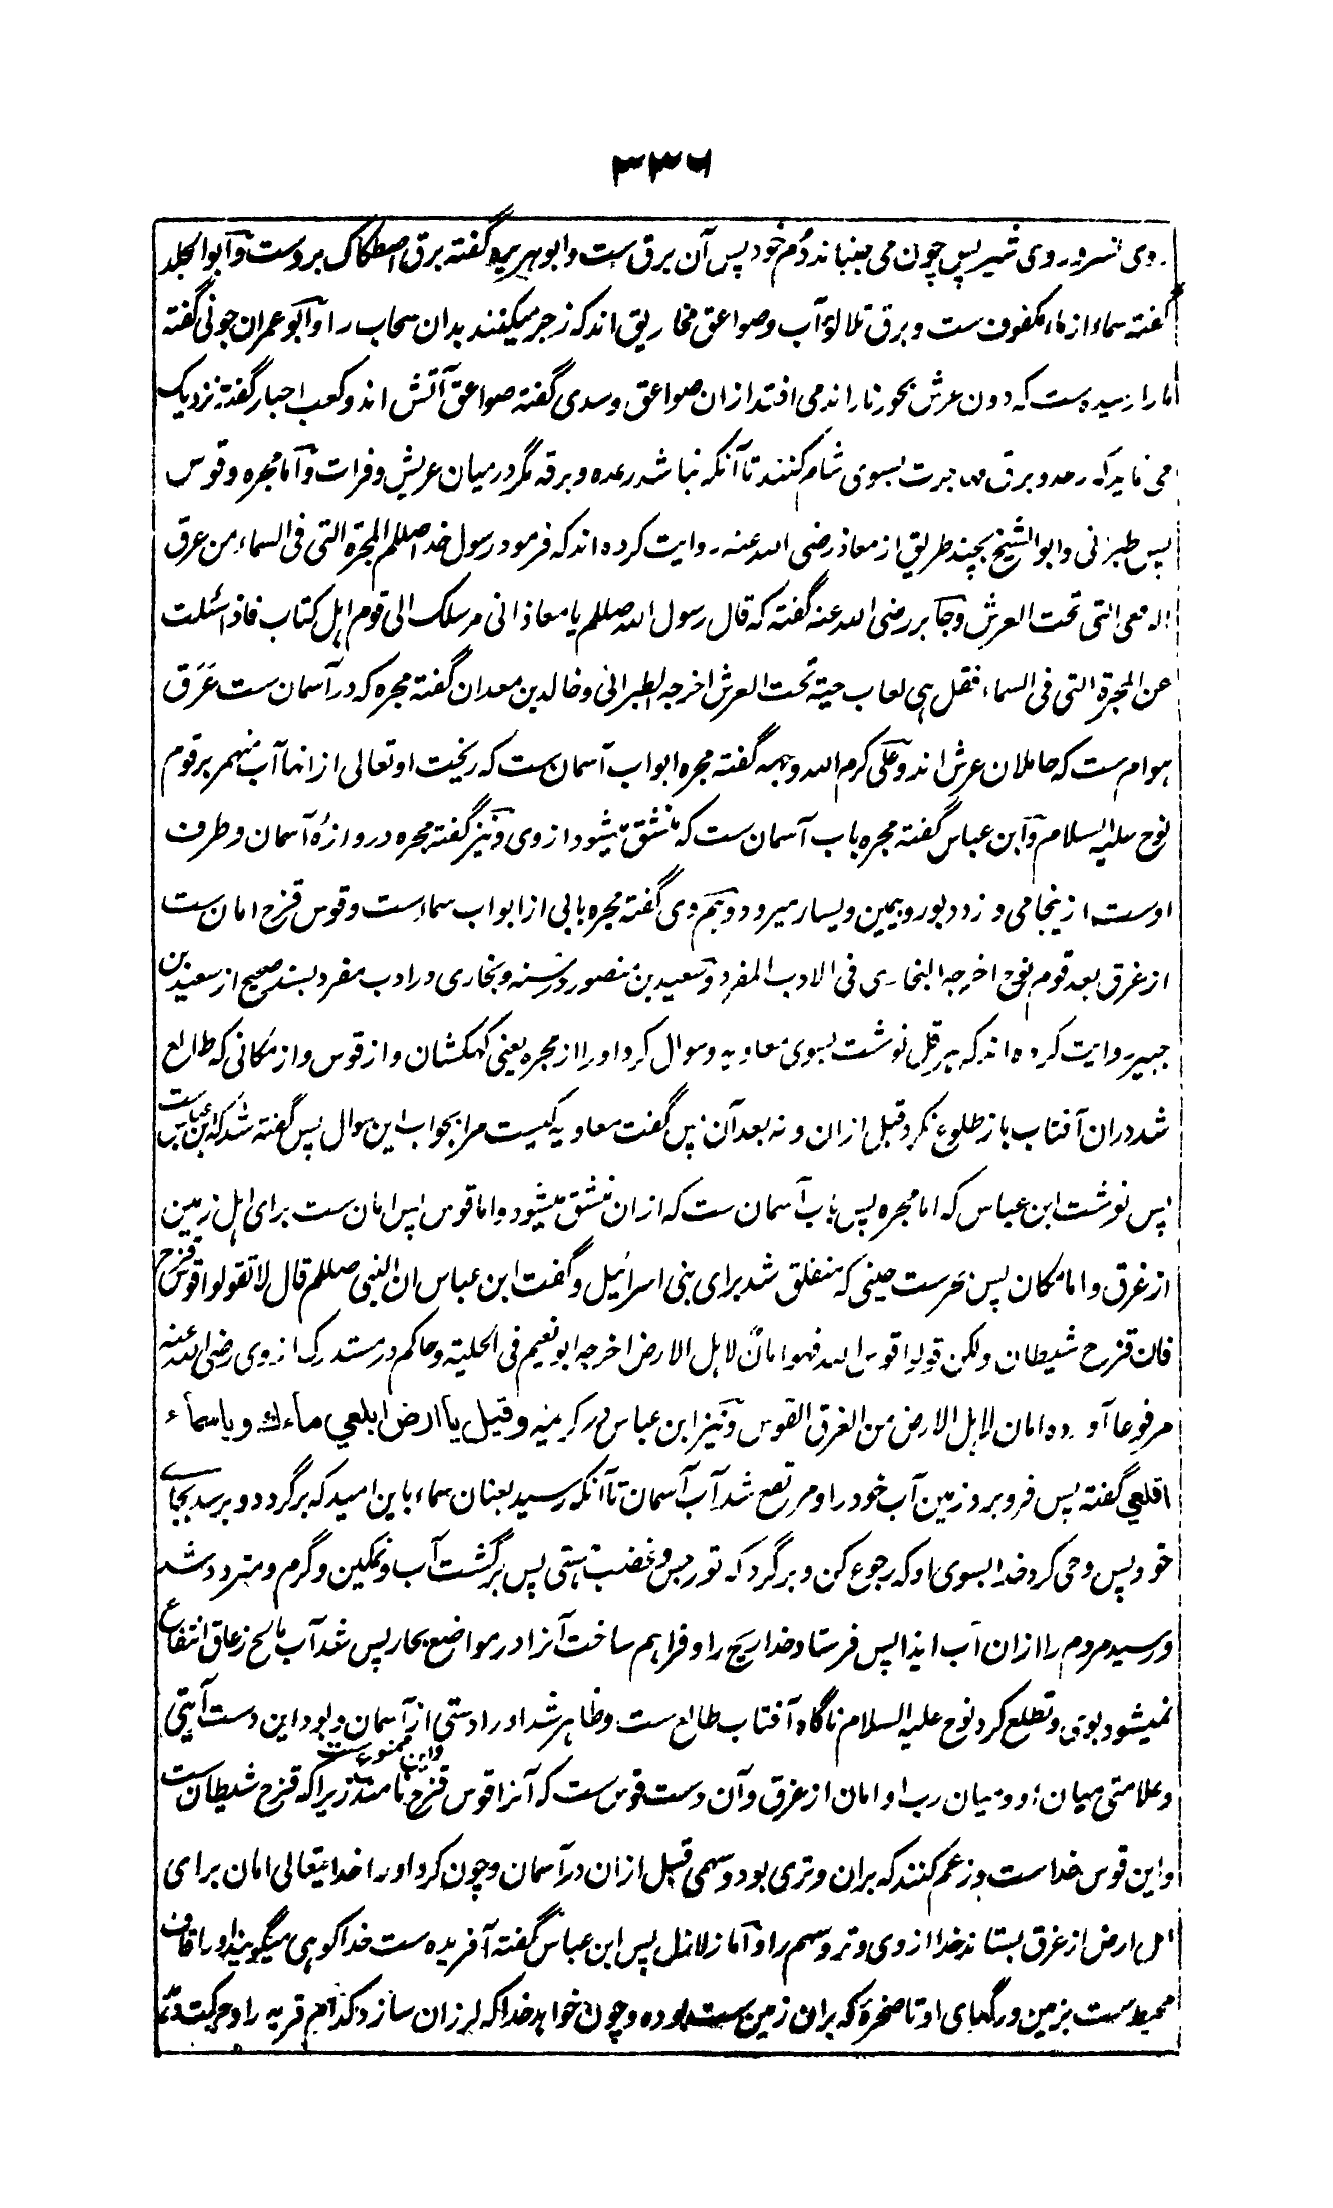 ۳۳۶
روی نسر و روی شیر پس چون می جنباند دُم خود پس آن برق ست و ابو ہریرہ گفته برق اصطکاک بردست و ابو الجلد
گفته سماء از ماء مکفوف ست و برق تلالؤ آب و صواعق مخاریق اند که زجر میکنند بدان سحاب را و ابو عمران جونی گفته
ما را رسیده ست که دون عرش بحور نار اند می افتد ازان صواعق و سدی گفته صواعق آتش اند و کعب احبار گفته نزدیک
می نماید که رعد و برق مهاجرت بسوی شام کنند تا آنکه نباشد رعده و برقه مگر درمیان عریش و فرات و اما مجره و قوس
پس طبرانی و ابو الشیخ بچند طریق از معاذ رضی الله عنه روایت کرده اند که فرمود رسول خدا صللم المجرة التی فی السماء من عرق
الافعی التی تحت العرش و جابر رضی الله عنه گفته که قال رسول الله صللم یا معاذ انی مرسلک الی قوم اہل کتاب فاذا سئلت
عن المجرة التی فی السماء فقل ہی لعاب حیة تحت العرش اخرجه الطبرانی و خالد بن معدان گفته مجره که در آسمان ست عَرَق
ہوام ست که حاملان عرش اند و علی کرم الله وجهه گفته مجره ابواب آسمان ست که ریخت او تعالی از انها آب منهمر بر قوم
نوح علیه السلام و ابن عباس گفته مجره باب آسمان ست که منشق میشود از وی و نیز گفته مجره دروازۀ آسمان و طرف
اوست ازینجا می وزد دبور و بیمین و یسار میرود و ہم وی گفته مجره بابی از ابواب سماء ست و قوس قزح امان ست
از غرق بعد قوم نوح اخرجه البخاری فی الادب المفرد و سعید بن منصور در سننه و بخاری در ادب مفرد بسند صحیح از سعید بن
جبیر روایت کرده اند که ہرقل نوشت بسوی معاویه و سوال کرد او را از مجره یعنی کهکشان و از قوس و از مکانی که طالع
شد دران آفتاب باز طلوع نکرد قبل ازان و نه بعد آن پس گفت معاویه کیست مرا بجواب این سوال پس گفته شد که ابن عباس ست
پس نوشت ابن عباس که اما مجره پس باب آسمان ست که ازان منشق میشود و اما قوس پس امان ست برای اہل زمین
از غرق و اما مکان پس بحرست حینی که منفلق شد برای بنی اسرائیل و گفت ابن عباس ان النبی صللم قال لا تقولوا قوس قزح
فان قزح شیطان ولکن قولوا قوس الله فهو امان لاہل الارض اخرجه ابو نعیم فی الحلیة و حاکم در مستدرک از وی رضی الله عنه
مرفوعا آورده امان لاہل الارض من الغرق القوس و نیز ابن عباس در کریمه وقیل یا ارض ابلعی ماءک ویا سماء
اقلعی گفته پس فرو برد زمین آب خود را و مرتفع شد آب آسمان تا آنکه رسید بعنان سماء باین امید که برگردد و برسد بجای
خود پس وحی کرد خدا بسوی او که رجوع کن و برگرد که تو رجس و غضب ہستی پس برگشت آب و نمکین و گرم و متردد شد
و رسید مردم را ازان آب ایذا پس فرستاد خدا ریح را و فراہم ساخت آنرا در مواضع بحار پس شد آب مالح زعاق انتفاع
نمیشود بوی و تطلع کرد نوح علیه السلام ناگاه آفتاب طالع ست و ظاہر شد او را دستی از آسمان و بود این دست آیتی
و علامتی میان او و میان رب او امان از غرق و آن دست قوس ست که آنرا قوس قزح نامند و این ممنوع ست زیرا که قزح شیطان ست
و این قوس خداست و زعم کنند که بران وتری بود و سهمی قبل ازان در آسمان و چون کرد او را خدایتعالی امان برای
اہل ارض از غرق بستاند خدا از وی وتر و سهم را و اما زلازل پس ابن عباس گفته آفریده ست خدا کوہی میگویند او را قاف
محیط ست بزمین و رگهای او تا صخرۀ که بران زمین ست بوده و چون خواہد خدا که لرزان سازد کدام قریه را و حرکت دہد